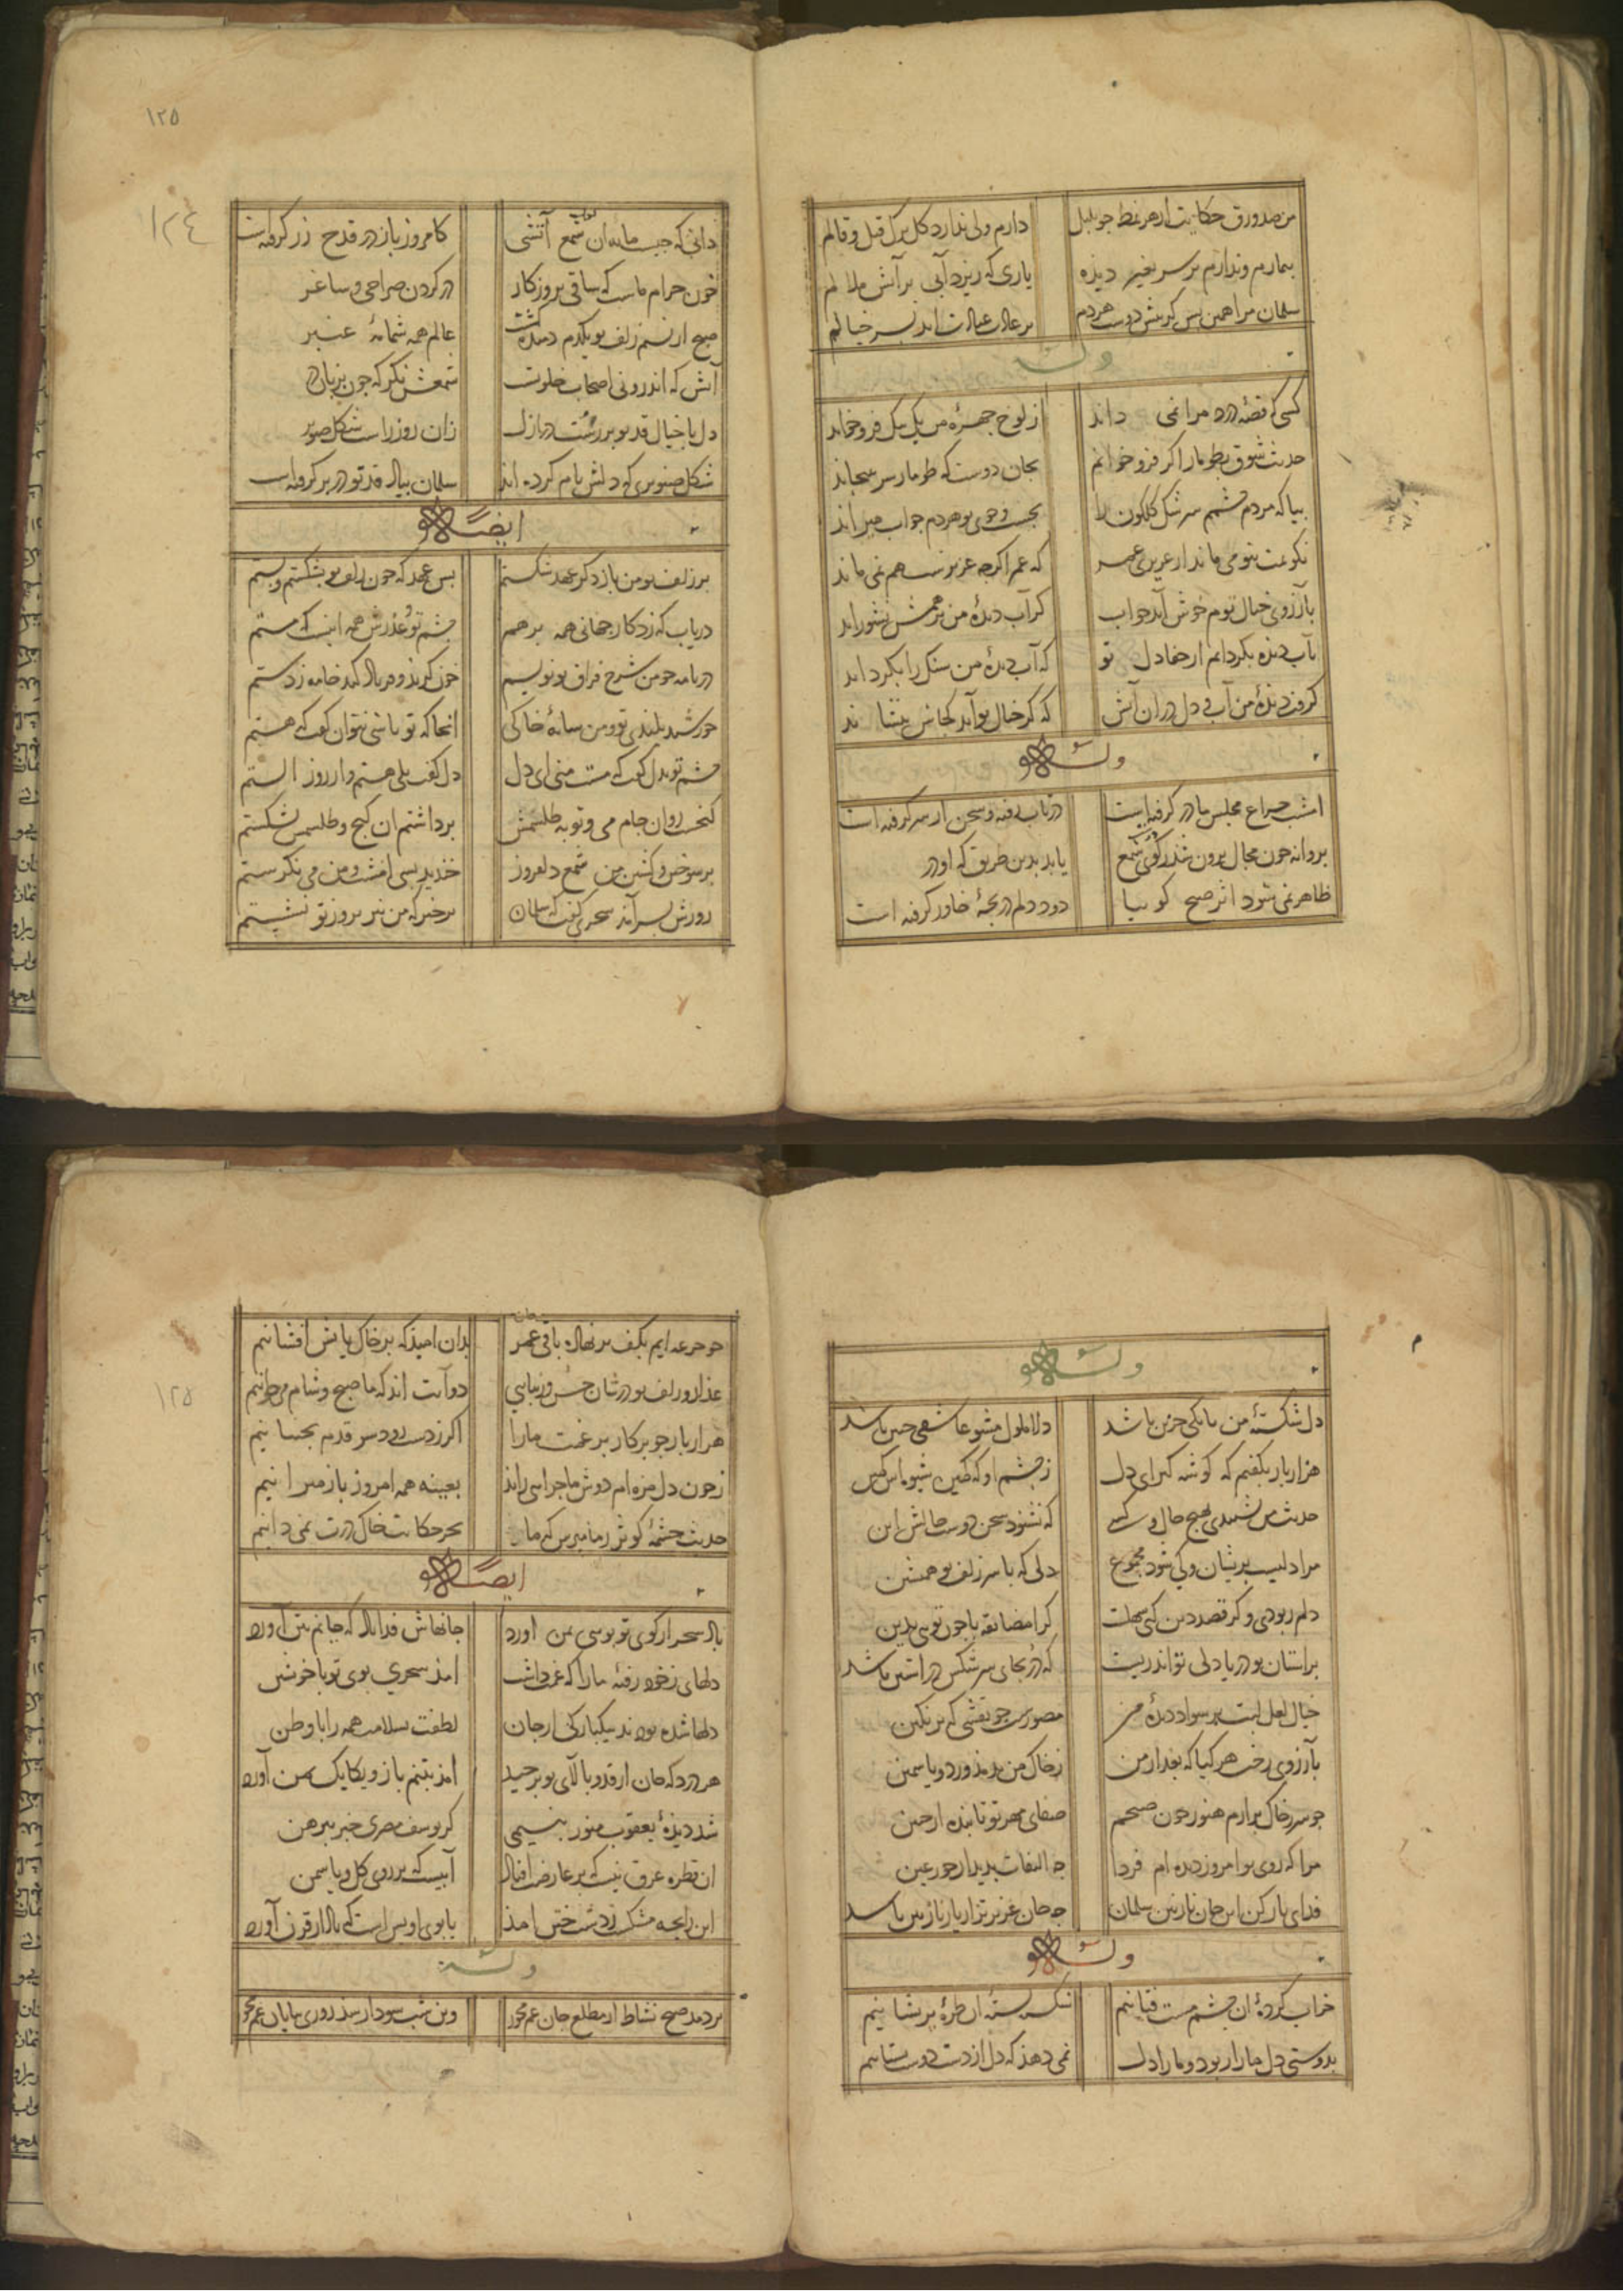 من صد ورق حکایت از هر نمط چو بلبل دارم ولی ندارد کل برک قیل و قالم
بیمارم و ندارم بر سر بغیر دیذه یاری که ریزد آبی بر آتش ملالم
سلمان مرا همین بس کر بهر دوست هردم
وله
کسی که قصهٔ درد مرا نمی داند ز لوح چهرهٔ من یک بیک فرو خواند
حدیث شوق بطومار اکر فرو خوانم بجان دوست که طومار سر بپیچاند
بیا که مردم چشمم سرشک کلکون را بجست و جوی تو هردم جواب میراند
نکویمت بتو می ماند از عزیزی عمر که عمر اکرچه عزیزست هم نمی ماند
بآرزوی خیال توم خوش آید خواب کر آب دیدهٔ من بر همش نشوراند
بآب دیذه بکردانم از جفا دل تو که آب دیدهٔ من سنک را بکرداند
کرفت دیذهٔ من آب و دل در آن آتش که کر خیال تو آید کجاش بنشاند
وله
امشب چراغ مجلس ما در کرفته است در تاب رفته و سخن از سر کرفته است
پروانه چون مجال برون شد ز کوی شمع یابد بدین طریق که او در
ظاهر نمی شود اثر صبح کوییا دود دلم دریچهٔ خاور کرفته است
۱۲۵
۱۲٤
دانی که چیست مایهٔ آن شمع آتشی کامروز باز در قدح زر کرفته است
خون حرام ماست که ساقی بروزکار در کردن صراحی و ساغر
صبح از نسیم زلف تو یکدم دمیده کشت عالم همه شمامهٔ عنبر
آتش که اندرونی اصحاب خلوت شمعش نکر که چون بزبان در
دل با خیال قد تو بر رست در ازل زان روز راست شکل صنوبر
شکل صنوبری که دلش نام کرده اند سلمان بیاد قد تو در بر کرفته است
ایضاً له
بر زلف تو من باز دکر عهد شکستم بس عهد که چون زلف تو بشکستم و بستم
دریاب که زد کار جهانی همه برهم چشم تو و عذرش همه اینست که مستم
در نامه چو من شرح فراق تو نویسم خون کرید و فریاد کند خامه ز دستم
خورشید بلندی تو و من سایهٔ خاکی آنجا که تو باشی نتوان کفت که هستم
چشم تو بدل کفت که مست منی ای دل دل کفت بلی هستم و از روز الستم
کنجیست روان جام می و توبه طلسمش برداشتم آن کنج و طلسمش بشکستم
بر سوختن و کشتن من شمع دلفروز خندید بسی امشب و من می نکرستم
روزش بسر آمد سحری کفت که سلمان برخیز که من نیز بروز تو نشستم
وله
دل شکستهٔ من تا بکی حزین باشد دلا ملول مشو عاشقی چنین باشد
هزار بار بکفتم که کوشه کیر ای دل ز چشم او که کمین شیوه اش کمین
حدیث من نشنیدی بهیچ حال و کسی که نشنود سخن دوست حالش این
مرا دلیست پریشان و کی شود مجموع دلی که با سر زلف تو همنشین
دلم ربودی و کر قصد دین کنی سهلست کرا مضایقه با چون تویی بدین
بر آستان تو دریا دلی تواند زیست که در بجای سرشکش در آستین باشد
خیال لعل لبت بر سواد دیدهٔ من مصورست چو نقشی که بر نکین
بآرزوی رخت هر کیا که بعد از من ز خاک من بدمد ورد و یاسمین
چو سر ز خاک برارم هنوز چون صبحم صفای مهر تو تابنده از جبین
مرا که روی تو امروز دیده ام فردا چه التفات بدیدار حور عین
فدای یار کن این جان نازنین سلمان چه جان عزیزتر از یار نازنین باشد
وله
خراب کردهٔ آن چشم مست فتانیم شکسته بستهٔ آن طرهٔ پریشانیم
بدوستی دل ما را ربود و ما را دل نمی دهذ که دل از دست دوست بستانیم
۱۲۵
چو جرعه ایم بکف بر نهاده باقی عمر جان بدان امیذ که بر خاک پایش افشانیم
عذار و زلف تو در شان حسن و زیبایی دو آیت اند که ما صبح و شام می خوانیم
هزار بار چو پرکار بر غمت ما را اکر ز دست رود سر قدم نجنبانیم
ز خون دل مژه ام دوش ماجرایی راند بعینه همه امروز باز میرانیم
حدیث چشمهٔ کوثر ز ما مپرس که ما بجز حکایت خاک درت نمی دانیم
ایضاً له
باد سحر از کوی تو بویی بمن آورد جانهاش فدا باد که جانم بتن آورد
دلهای ز خود رفتهٔ ما را که غمت داشت امذ سحری بوی تو با خویشتن
دلها شده بودند بیکبارکی از جان لطفت بسلامت همه را با وطن
هر درد که جان از قد و بالای تو برچید امذ بتنم باز و یکایک بمن آورد
شد دیذهٔ یعقوب منور بنسیمی کز یوسف مصری خبر پیرهن
آن قطره عرق نیست که بر عارضت افتاد آبیست که بر روی کل و یاسمن
این رایحهٔ مشک ز دشت ختن امذ یا بوی اویس است که باد از قرن آورد
وله
بر دمد صبح نشاط از مطلع جان غم مخور وین شب سودا رسد روزی بپایان غم مخور